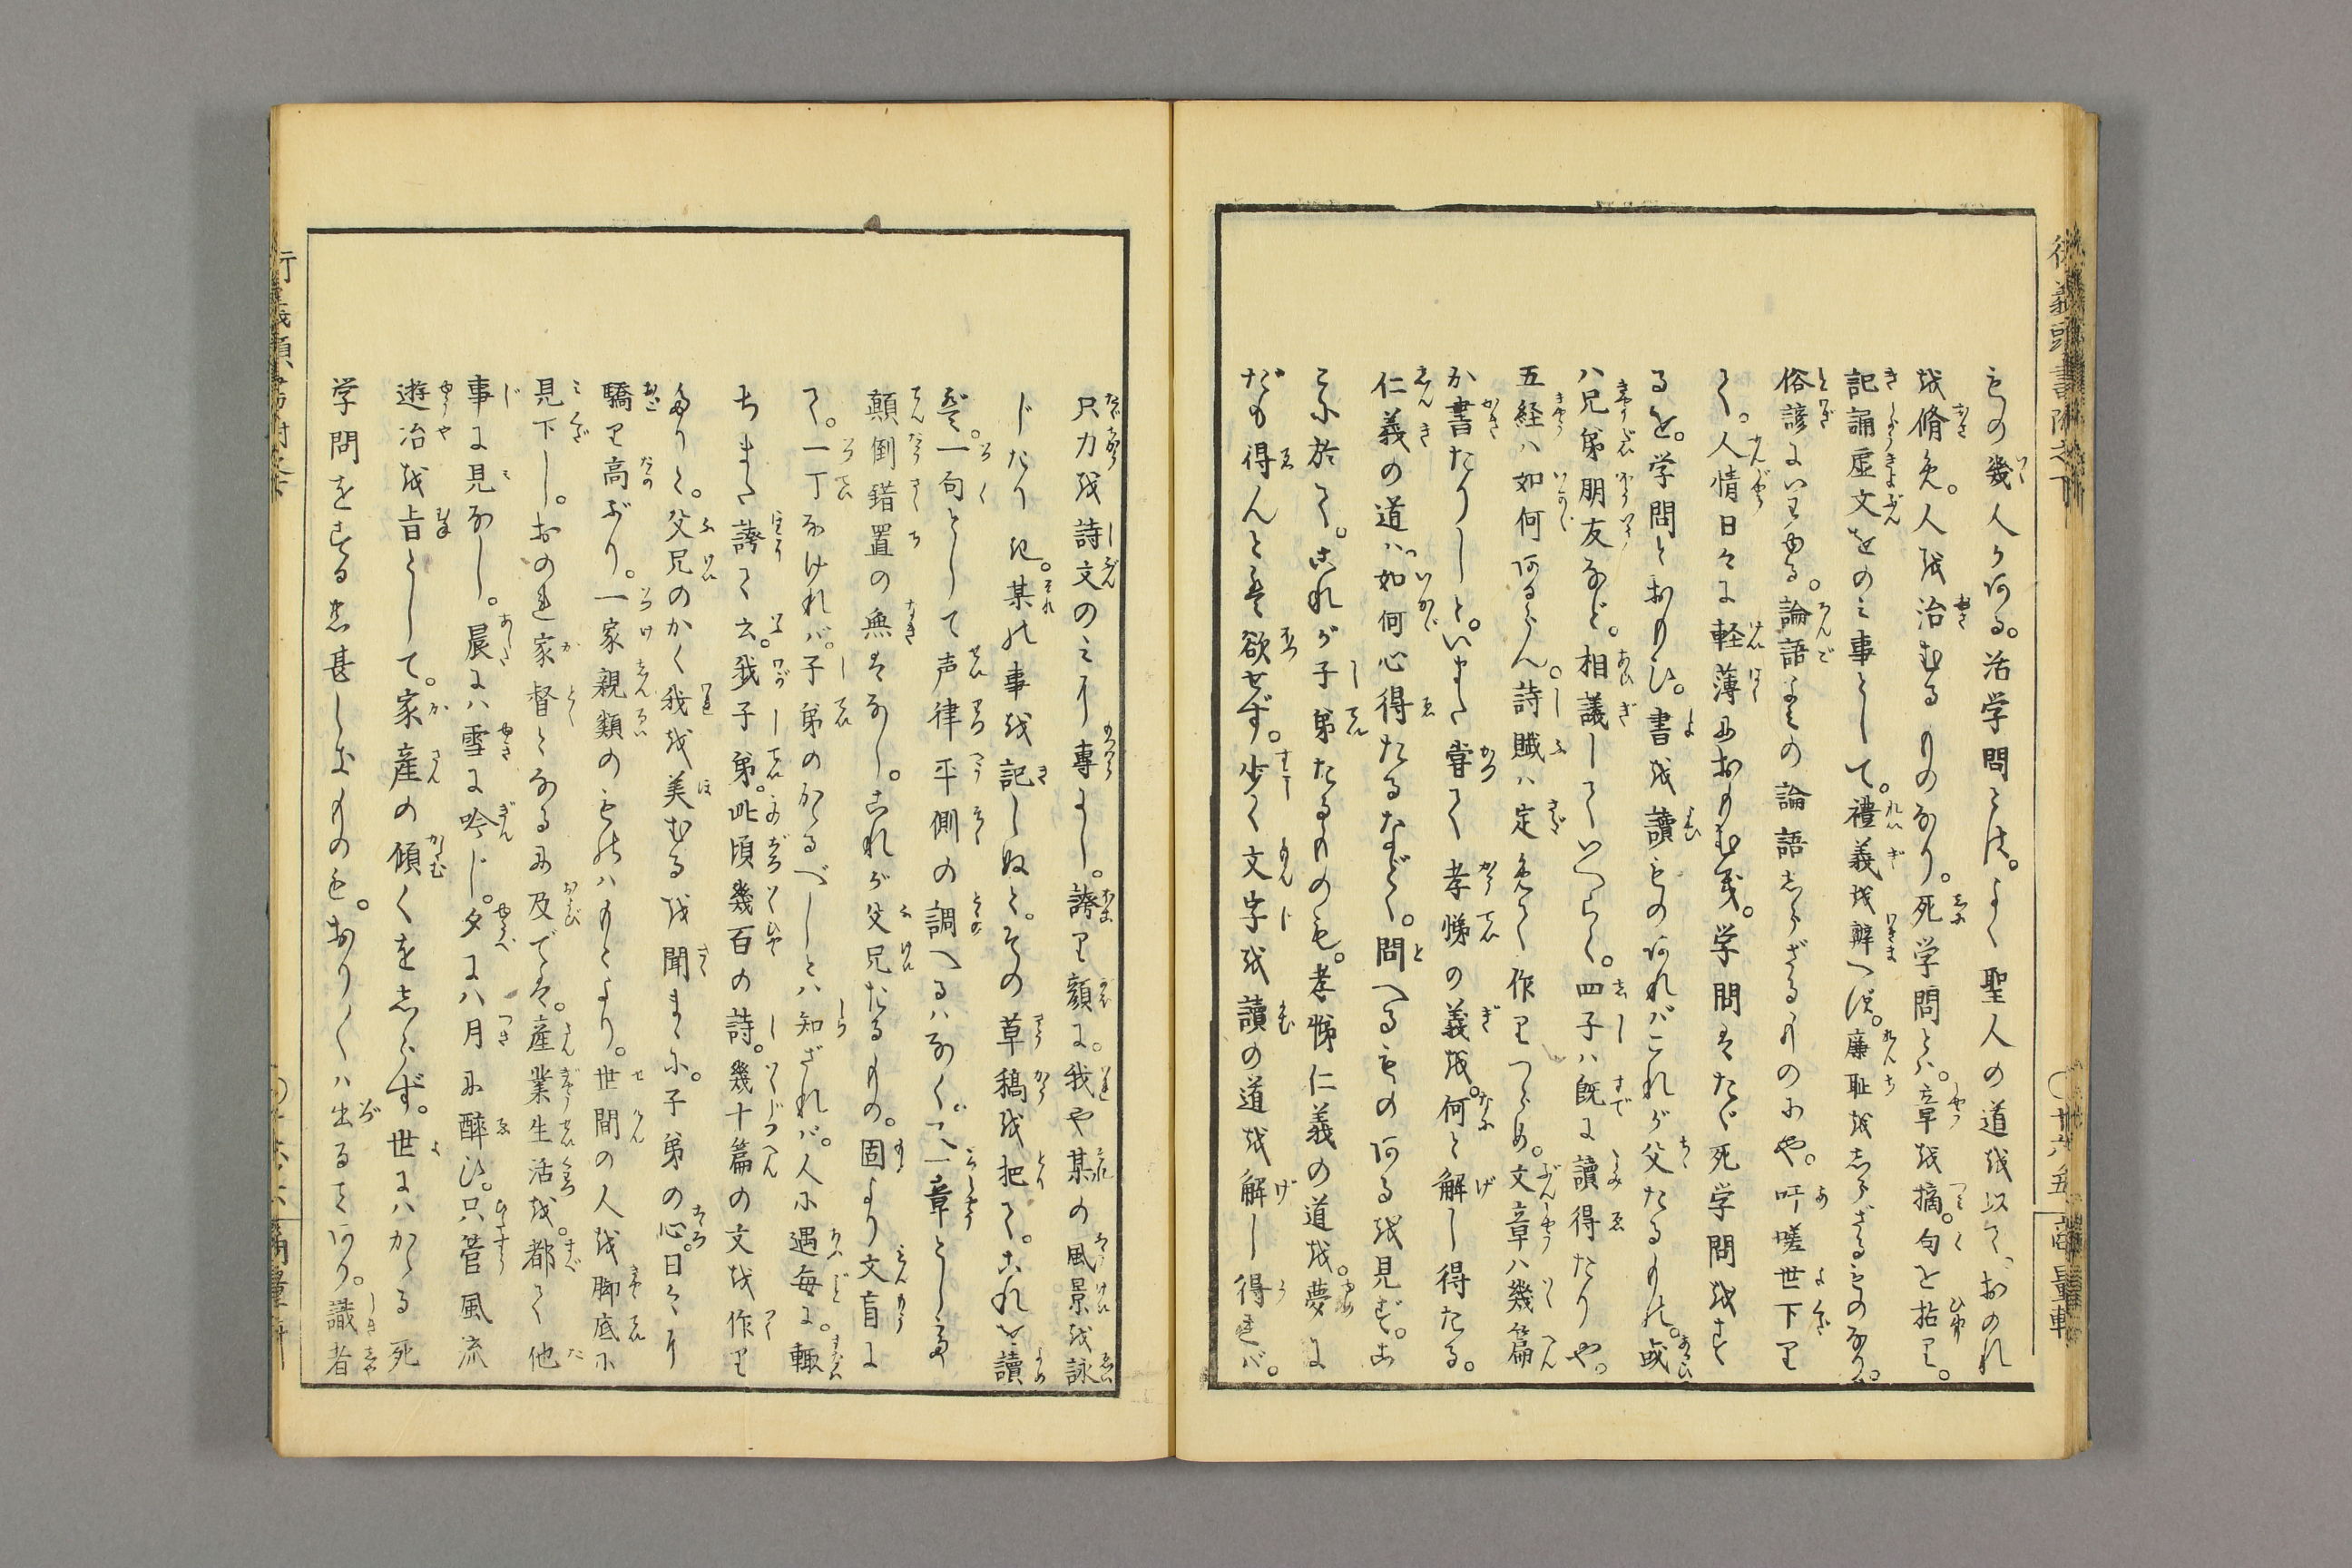 もの幾人かある。活学問とは。よく聖人の道を以て、おのれ
を脩め。人を治むるものなり。死学問とは。章を摘。句を拈り。
記誦虚文をのみ事として。禮義を辨へず。廉耻を志らざるものなり。
俗諺にいはゆる。論語よみの論語志らざるものにや。吁嗟世下り
て。人情日々に軽薄におもむき。学問はたゞ死学問をす
るを。学問とおもひ。書を讀ものあれバこれが父たるもの。或
ハ兄弟朋友など。相議していへらく。四子ハ既に讀得たりや。
五経ハ如何あるらん。詩賦ハ定めて作りつらめ。文章ハ幾篇
か書たりしと。いまだ甞て孝悌の義を。何と解し得たる。
仁義の道ハ。如何心得たるなどゝ。問へるものあるを見ず。こ
こに於て。これが子弟たるものも。孝悌仁義の道を。夢に
だも得んとは欲せず。少く文字を讀の道を解し得れバ。
只力を詩文のミに專よし。誇り顔に。我や某の風景を詠
じたりき。某の事を記しぬと。その草稿を把て。これを讀
ば。一句として声律平側の調へるハなく。一章として
顛倒錯置の無はなし。これが父兄たるもの。固より文盲に
て。一丁なけれバ。子弟のかゝるべしとハ知ざれバ。人に遇毎に。輙
ちまた誇て云。我子弟。此頃幾百の詩。幾十篇の文を作り
たりと。父兄のかく我を美むるを聞まゝに。子弟の心。日々に
驕り高ぶり。一家親類のものハもとより。世間の人を脚底に
見下し。おのれ家督となるに及では。産業生活を。都て他
事に見なし。晨にハ雪に吟じ。夕にハ月に醉ひ。只管風流
遊冶を旨として。家産の傾くを志らず。世にハかゝる死
学問をする忠甚しきものも。おり〳〵ハ出ることあり。識者